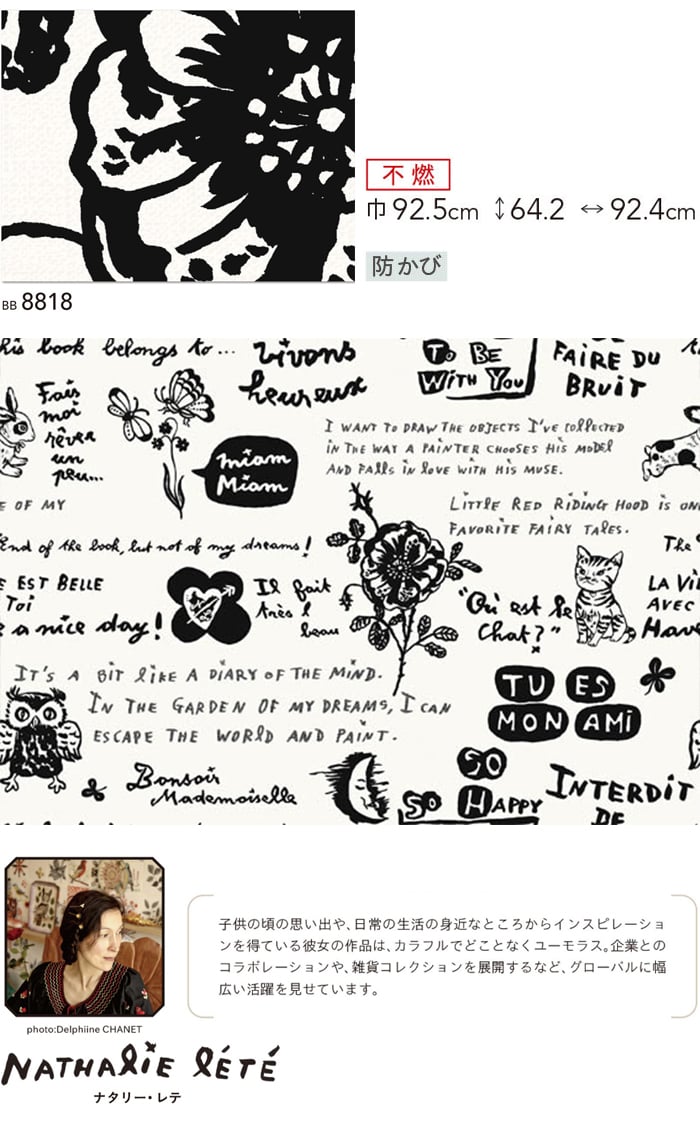 不燃
巾92.5cm ↕64.2 ↔92.4cm
防かび
BB 8818
his book belongs to...
Vivons
heureux
To BE
WITH YOU
FAIRE DU
BRUIT
Fais
moi
rêver
un
peu...
miam
Miam
I WANT TO DRAW THE OBJECTS I'VE COLLECTED
IN THE WAY A PAINTER CHOOSES HIS MODEL
AND FALLS IN LOVE WITH HIS MUSE.
E OF MY
LITTLE RED RIDING HOOD IS ON
FAVORITE FAIRY TALES.
End of the book, but not of my dreams!
The
E EST BELLE
TOI
e a nice day!
Il fait
très
beau
"Où est le
chat?"
LA VI
AVEC
Have
IT'S A BIT LIKE A DIARY OF THE MIND.
IN THE GARDEN OF MY DREAMS, I CAN
ESCAPE THE WORLD AND PAINT.
TU ES
MON AMI
Bonsoir
Mademoiselle
SO
SO HAPPY
INTERDIT
DE
子供の頃の思い出や、日常の生活の身近なところからインスピレーショ
ンを得ている彼女の作品は、カラフルでどことなくユーモラス。企業との
コラボレーションや、雑貨コレクションを展開するなど、グローバルに幅
広い活躍を見せています。
photo:Delphiine CHANET
NATHALIE LÉTÉ
ナタリー・レテ